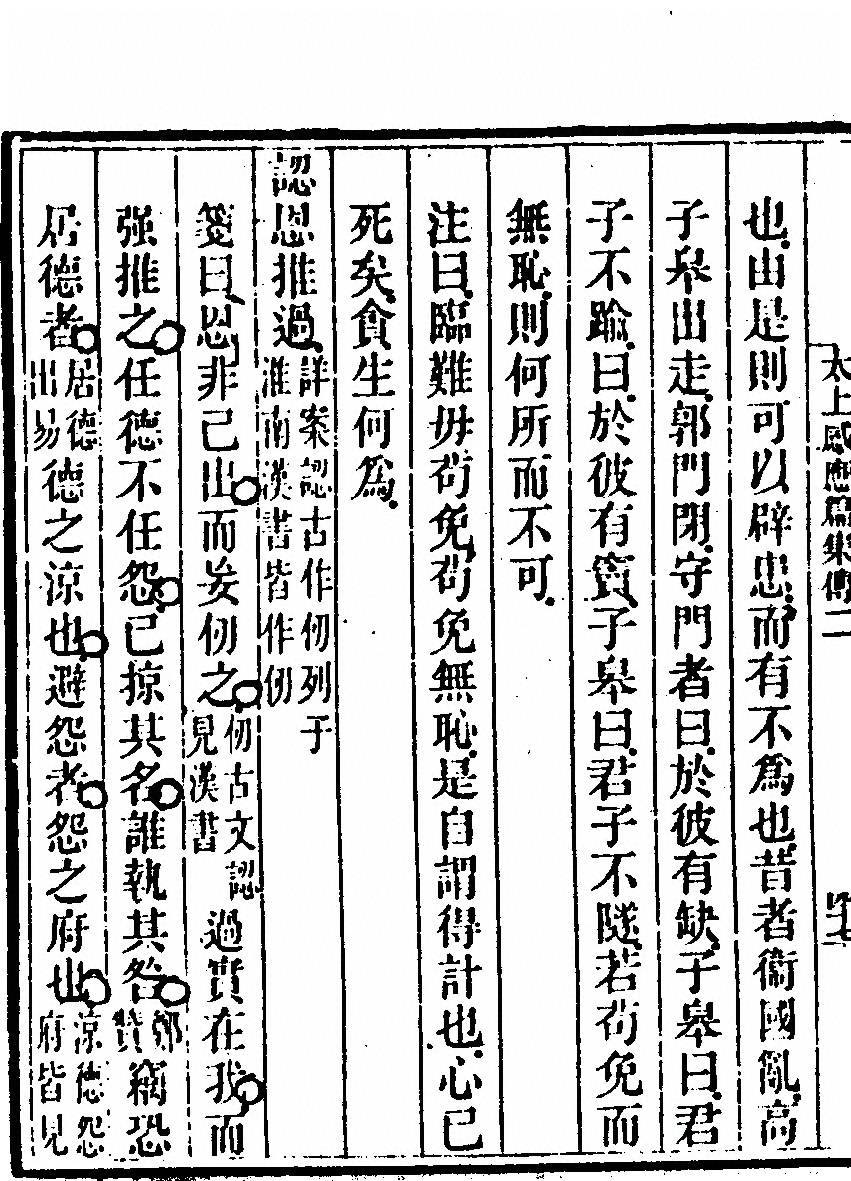 太上感應篇集傳二
四十七
也由是則可以辟忠而有不爲也昔者衞國亂高
子皋出走郭門閉守門者曰於彼有缺子皋曰君
子不踰曰於彼有竇子皋曰君子不隧若苟免而
無恥則何所而不可
注曰臨難毋苟免苟免無恥是自謂得計也心已
死矣貪生何爲
認恩推過詳案認古作仞列于
淮南漢書皆作仞
箋曰恩非己出而妄仞之仞古文認
見漢書過實在我而
强推之任德不任怨已掠其名誰執其咎鄭
贊竊恐
居德者居德
出易德之涼也避怨者怨之府也涼德怨
府皆見